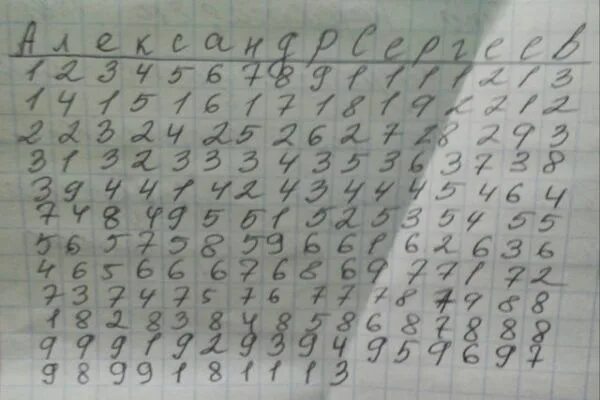 А л е к с а н д р С е р г е е в
1 2 3 4 5 6 7 8 9 1 1 1 1 2 1 3
1 4 1 5 1 6 1 7 1 8 1 9 2 2 1 2
2 2 3 2 4 2 5 2 6 2 7 2 8 2 9 3
3 1 3 2 3 3 3 4 3 5 3 6 3 7 3 8
3 9 4 4 1 4 2 4 3 4 4 4 5 4 6 4
7 4 8 4 9 5 5 1 5 2 5 3 5 4 5 5
5 6 5 7 5 8 5 9 6 6 1 6 2 6 3 6
4 6 5 6 6 6 7 6 8 6 9 7 7 1 7 2
7 3 7 4 7 5 7 6 7 7 7 8 7 9 8 8
1 8 2 8 3 8 4 8 5 8 6 8 7 8 8 8
9 9 9 1 9 2 9 3 9 4 9 5 9 6 9 7
9 8 9 9 1 8 1 1 1 3